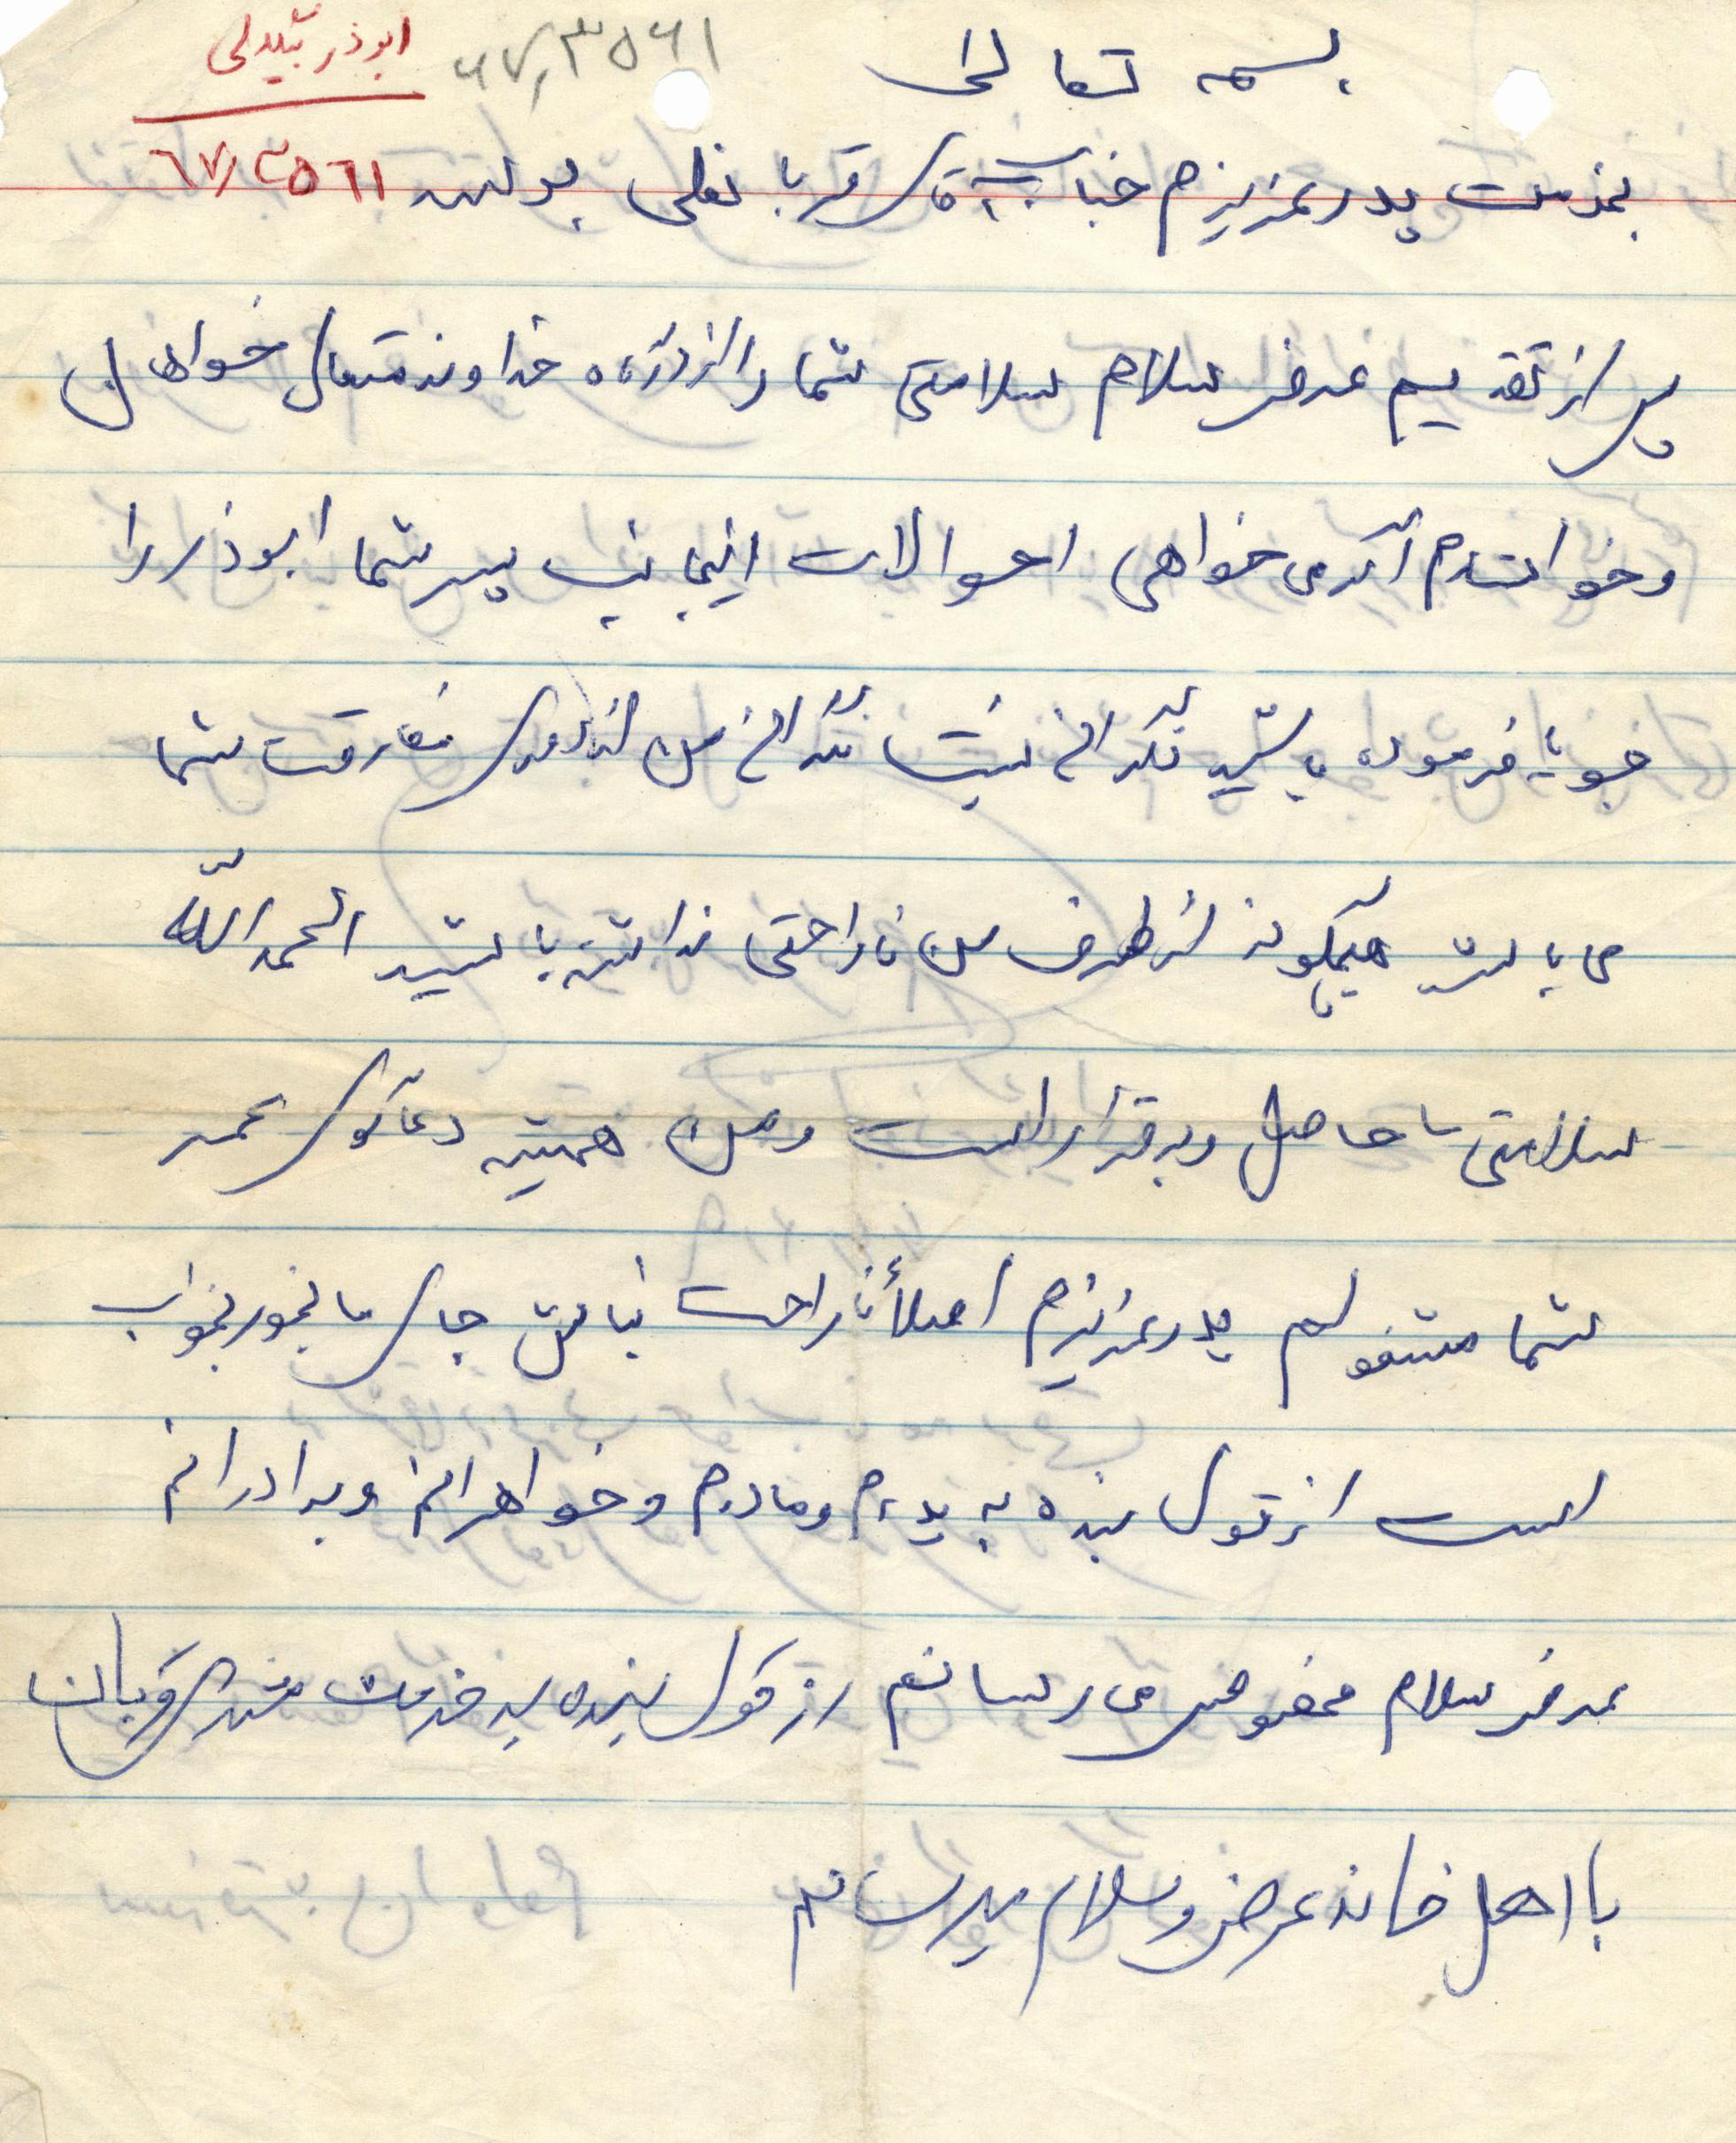 ابوذر بیدلی
۶۷٫۳۵۶۱
بسمه تعالی
بخدمت پدر عزیزم جناب آقای قربانعلی برسد ۶۷٫۳۵۶۱
پس از تقدیم عرض سلام سلامتی شما را از درگاه خداوند متعال خواهانم
و خواستارم اگر می خواهی احوالات اینجانب پسر شما ابوذر را
جویا فرموده باشید نگرانی نیست نگرانی من از دوری مفارقت شما
می باشد هیچگونه از طرف من ناراحتی نداشته باشید الحمدالله
سلامتی حاصل و برقرار است و من همیشه دعاگوی عمر
شما مشغولم پدر عزیزم اصلاً ناراحت نباش جای ما بخور بخواب
است از قول بنده به پدرم و مادرم و خواهرانم و برادرانم
عرض سلام مخصوص می رسانم از قول بنده به خدمت مشدی قربان
با اهل خانه عرض و سلام میرسانم